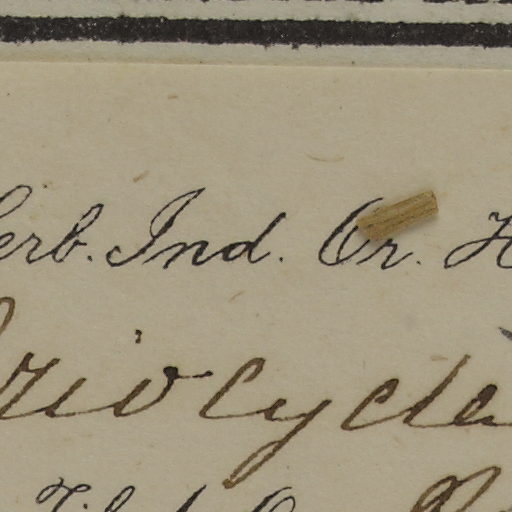 Herb. Ind. Or. H
Eriocycla